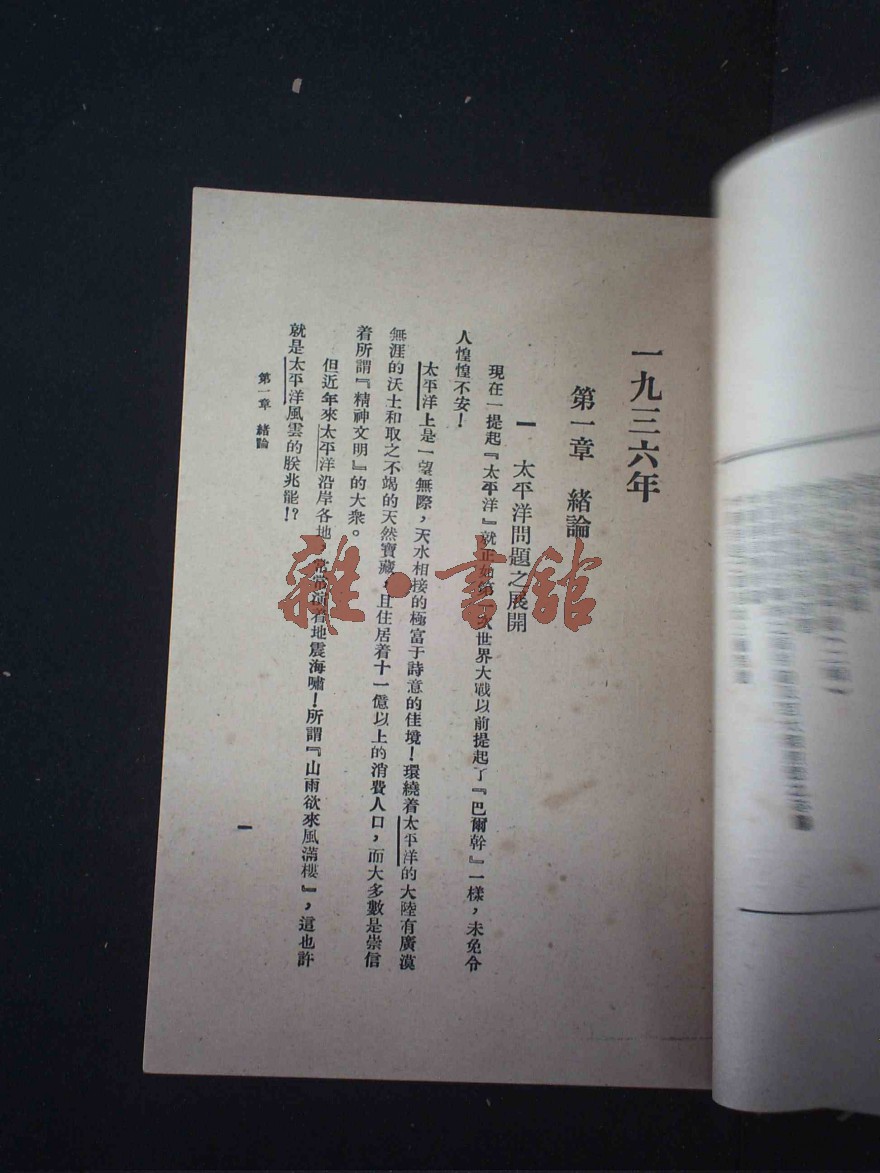 一九三六年
第一章 緒論
一 太平洋問題之展開
現在一提起『太平洋』就正如第一次世界大戰以前提起了『巴爾幹』一樣，未免令
人惶惶不安！
太平洋上是一望無際，天水相接的極富于詩意的佳境！環繞着太平洋的大陸有廣漠
無涯的沃土和取之不竭的天然寶藏，且住居着十一億以上的消費人口，而大多數是崇信
着所謂『精神文明』的大衆。
但近年來太平洋沿岸各地，常常演着地震海嘯！所謂『山雨欲來風滿樓』，這也許
就是太平洋風雲的朕兆罷！？
第一章 緒論
一
雜·書館